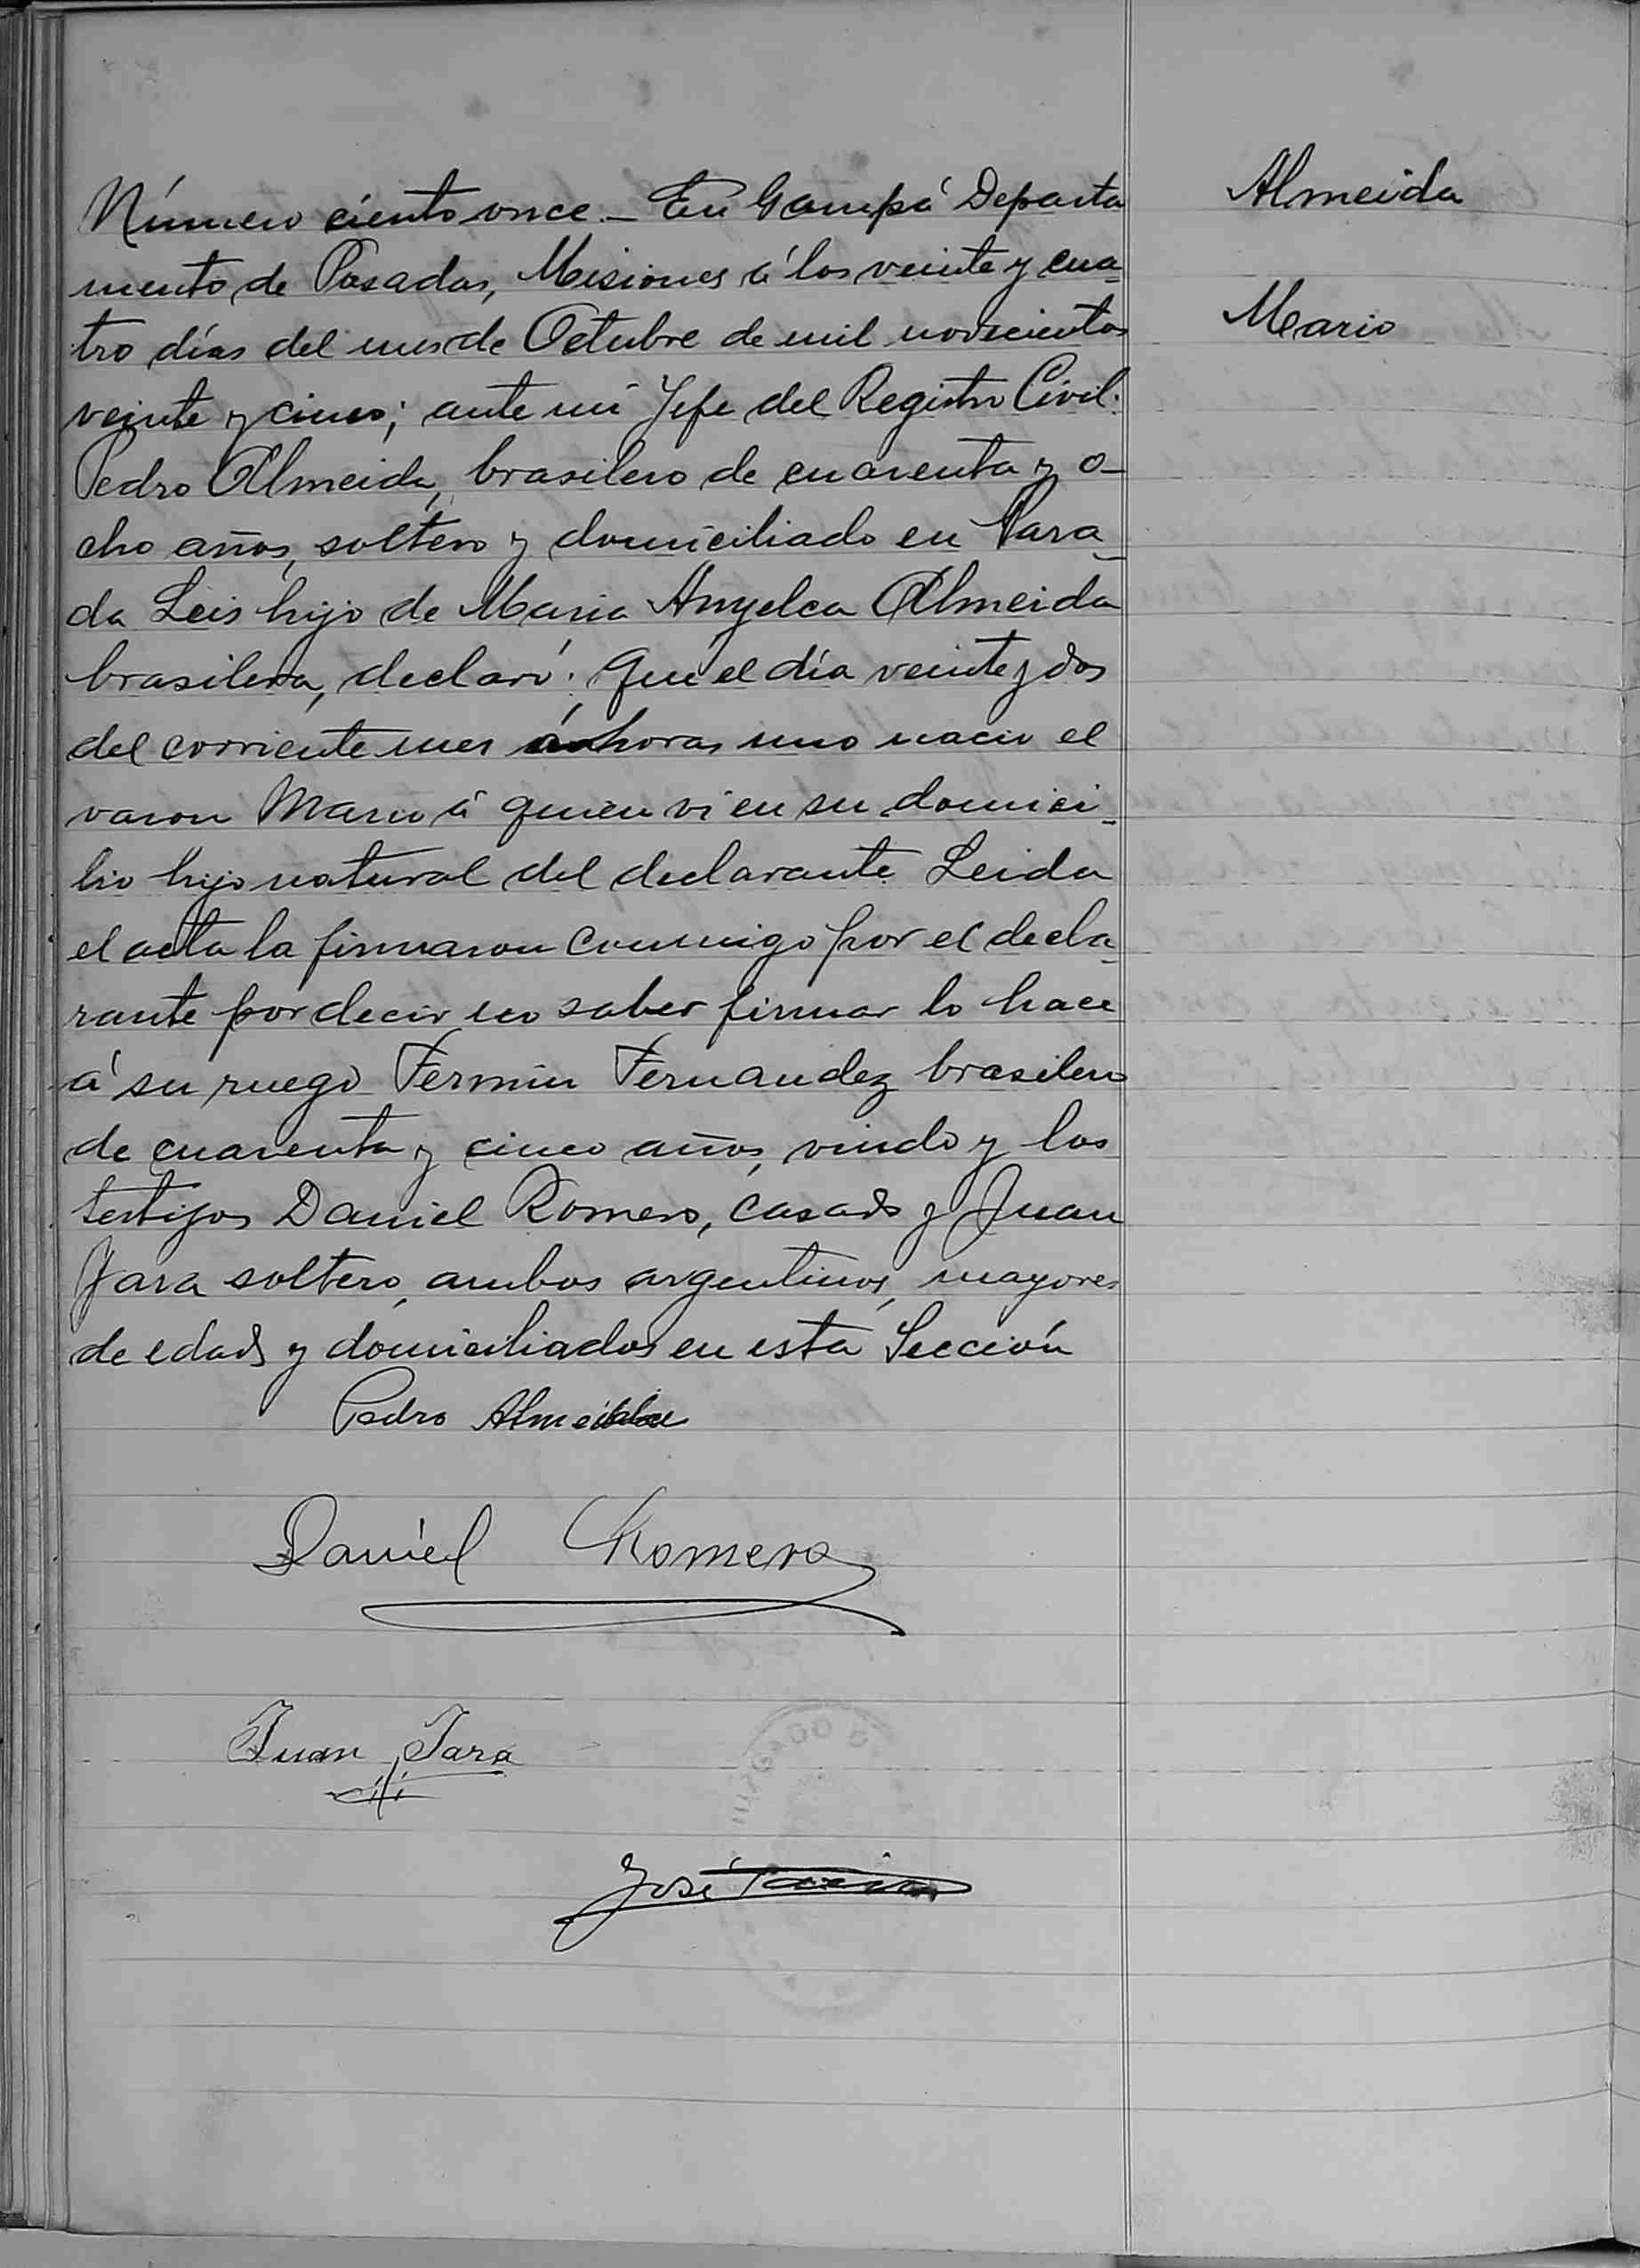 Almeida
Mario
Número ciento once.- En Garupá Departa
mento de Posadas, Misiones á los veinte y cua-
tro días del mes de Octubre de mil novecientos
veinte y cinco; ante mi Jefe del Registro Civil:
Pedro Almeida, brasilero de cuarenta y o-
cho años, soltero y domiciliado en Para-
da Leis hijo de Maria Angelca Almeida
brasilera, declaró: Que el día veinte y dos
del corriente mes á horas uno nacio el
varon Mario á quien vi en su domici-
lio hijo natural del declarante Leida
el acta la firmaron conmigo por el decla-
rante por decir no saber firmar lo hace
á su ruego Fermin Fernandez brasilero
de cuarenta y cinco años, viudo y los
testigos Daniel Romero, casado y Juan
Jara soltero, ambos argentinos, mayores
de edad y domiciliados en esta Sección
Pedro Almeida
Daniel Romero
Juan Jara
José